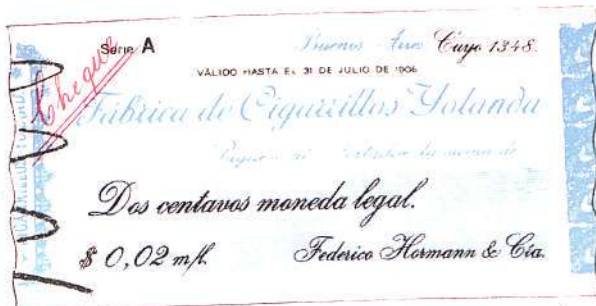 Serie A
Buenos Aires Cuyo 1348.
VÁLIDO HASTA EL 31 DE JULIO DE 1906
Cheque
Fábrica de Cigarrillos Yolanda
Dos centavos moneda legal.
$ 0,02 m/l.
Federico Hormann & Cía.